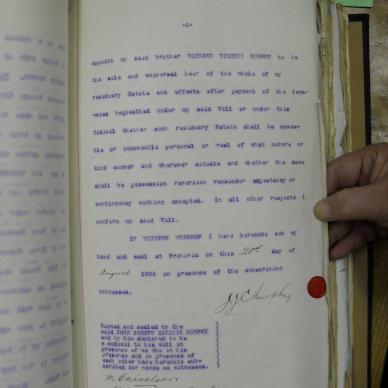 -2-
appoint my said brother RICHARD VINCENT MURPHY to be
the sole and universal heir of the whole of my
residuary Estate and effects after payment of the lega-
cies bequeathed under my said Will or under this
Codicil whether such residuary Estate shall be movea-
ble or immovable personal or real of what nature or
kind soever and wherever situate and whether the same
shall be possession reversion remainder expectancy or
contingency nothing excepted. In all other respects I
confirm my said Will.
IN WITNESS WHEREOF I have hereunto set my
hand and seal at Pretoria on this 20th day of
August in presence of the subscribing
witnesses.
J J C Murphy
Signed and sealed by the
said JOHN JOSEPH MURPHY
and by him declared to be
a codicil to his will in
presence of us who in his
presence and in presence of
each other have hereunto sub-
scribed our names as witnesses.